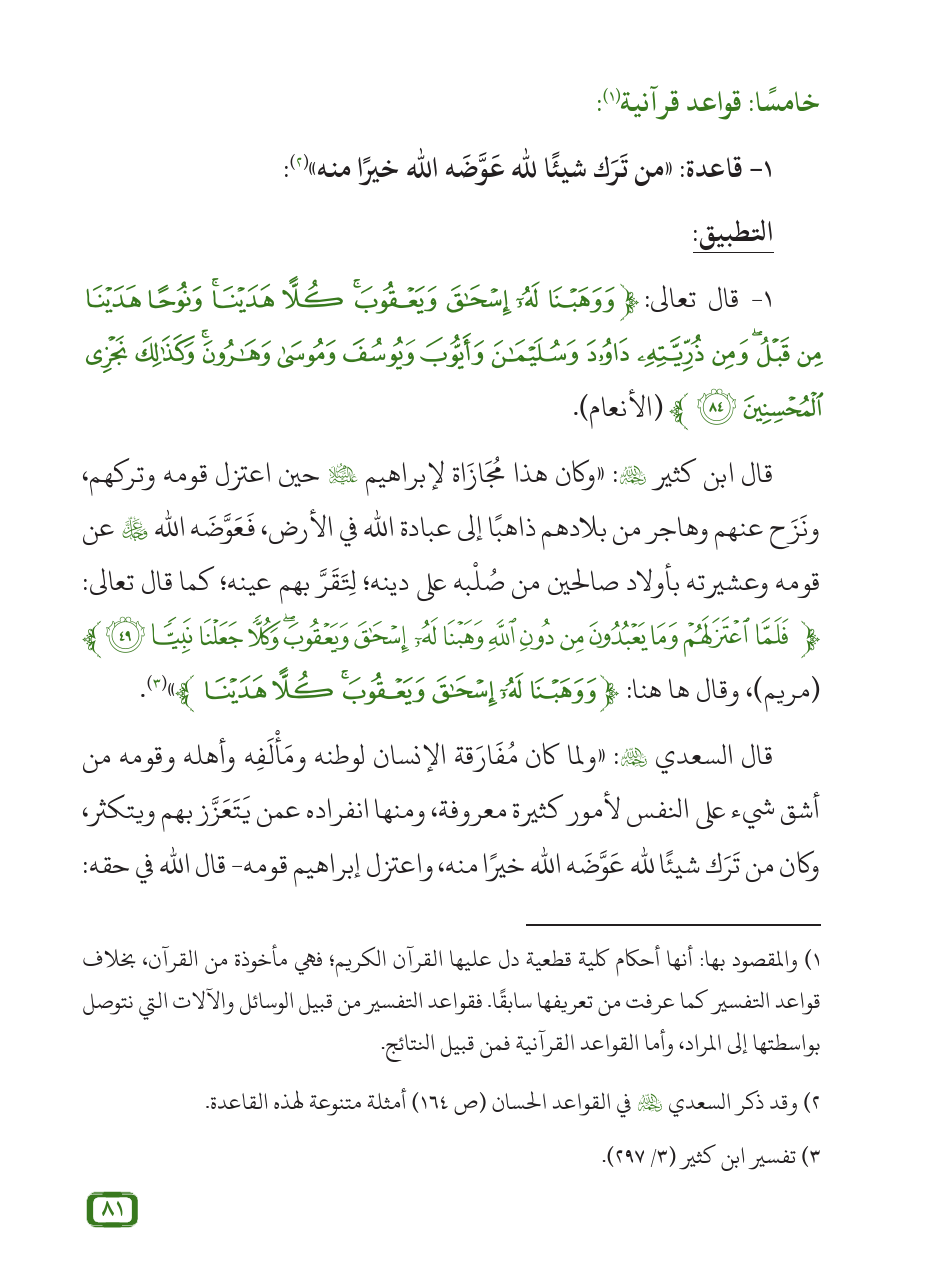 خامسًا: قواعد قرآنية(١):
١- قاعدة: «من تَرَك شيئًا لله عَوَّضَه الله خيرًا منه»(٢):
التطبيق:
١- قال تعالى: ﴿ وَوَهَبْنَا لَهُۥٓ إِسْحَٰقَ وَيَعْقُوبَ ۚ كُلًّا هَدَيْنَا ۚ وَنُوحًا هَدَيْنَا
مِن قَبْلُ ۖ وَمِن ذُرِّيَّتِهِۦ دَاوُۥدَ وَسُلَيْمَٰنَ وَأَيُّوبَ وَيُوسُفَ وَمُوسَىٰ وَهَٰرُونَ ۚ وَكَذَٰلِكَ نَجْزِى
ٱلْمُحْسِنِينَ ٨٤ ﴾ (الأنعام).
قال ابن كثير رحمه الله: «وكان هذا مُجَازَاة لإبراهيم عليه السلام حين اعتزل قومه وتركهم،
ونَزَح عنهم وهاجر من بلادهم ذاهبًا إلى عبادة الله في الأرض، فَعَوَّضَه الله عز وجل عن
قومه وعشيرته بأولاد صالحين من صُلْبه على دينه؛ لِتَقَرَّ بهم عينه؛ كما قال تعالى:
﴿ فَلَمَّا ٱعْتَزَلَهُمْ وَمَا يَعْبُدُونَ مِن دُونِ ٱللَّهِ وَهَبْنَا لَهُۥٓ إِسْحَٰقَ وَيَعْقُوبَ ۖ وَكُلًّا جَعَلْنَا نَبِيًّا ٤٩ ﴾
(مريم)، وقال ها هنا: ﴿ وَوَهَبْنَا لَهُۥٓ إِسْحَٰقَ وَيَعْقُوبَ ۚ كُلًّا هَدَيْنَا ﴾»(٣).
قال السعدي رحمه الله: «ولما كان مُفَارَقة الإنسان لوطنه ومَأْلَفِه وأهله وقومه من
أشق شيء على النفس لأمور كثيرة معروفة، ومنها انفراده عمن يَتَعَزَّز بهم ويتكثر،
وكان من تَرَك شيئًا لله عَوَّضَه الله خيرًا منه، واعتزل إبراهيم قومه- قال الله في حقه:
١) والمقصود بها: أنها أحكام كلية قطعية دل عليها القرآن الكريم؛ فهي مأخوذة من القرآن، بخلاف
قواعد التفسير كما عرفت من تعريفها سابقًا. فقواعد التفسير من قبيل الوسائل والآلات التي نتوصل
بواسطتها إلى المراد، وأما القواعد القرآنية فمن قبيل النتائج.
٢) وقد ذكر السعدي رحمه الله في القواعد الحسان (ص ١٦٤) أمثلة متنوعة لهذه القاعدة.
٣) تفسير ابن كثير (٣/ ٢٩٧).
٨١